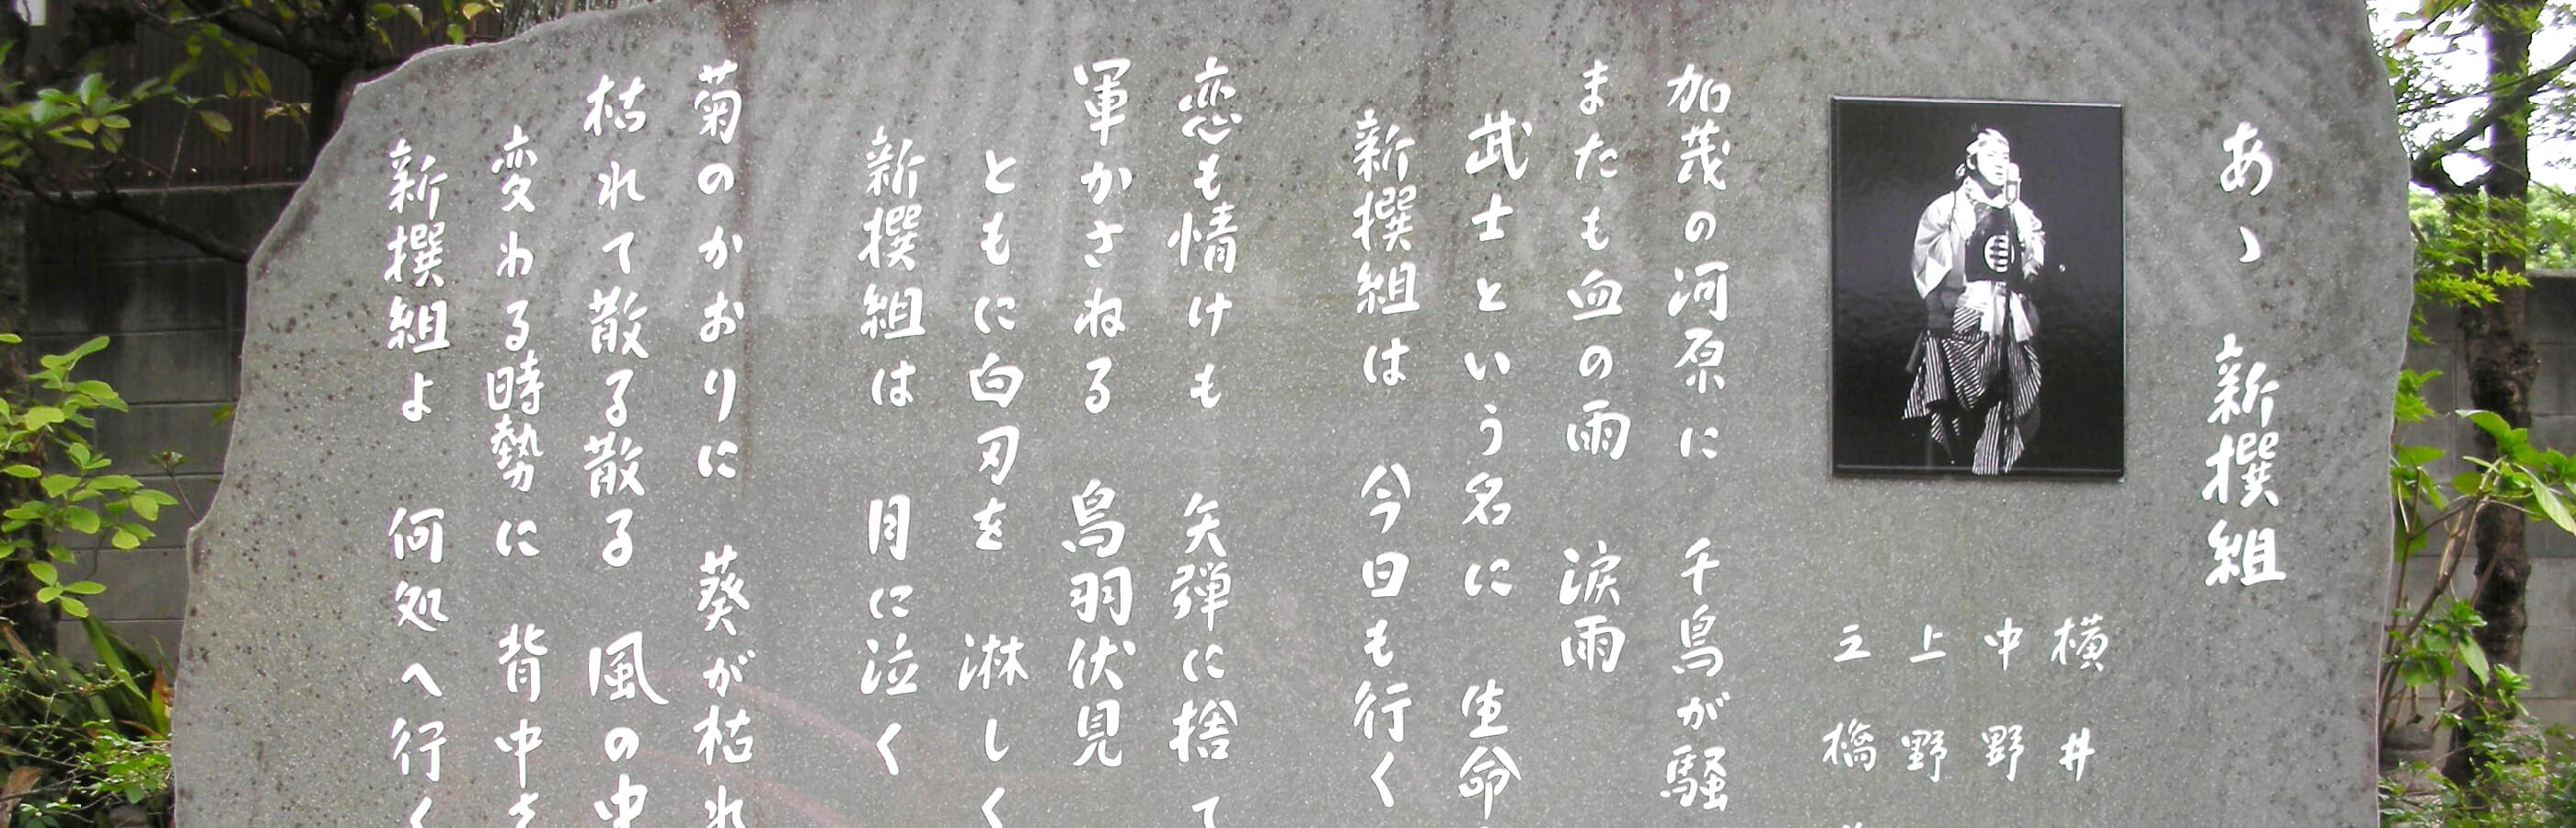 あゝ 新撰組
横井
中野
上野
立橋
加茂の河原に 千鳥が騒
またも血の雨 涙雨
武士という名に 生命
新撰組は 今日も行く
恋も情けも 矢弾に捨て
軍かさねる 鳥羽伏見
ともに白刃を 淋しく
新撰組は 月に泣く
菊のかおりに 葵が枯れ
枯れて散る散る 風の中
変わる時勢に 背中を
新撰組よ 何処へ行く